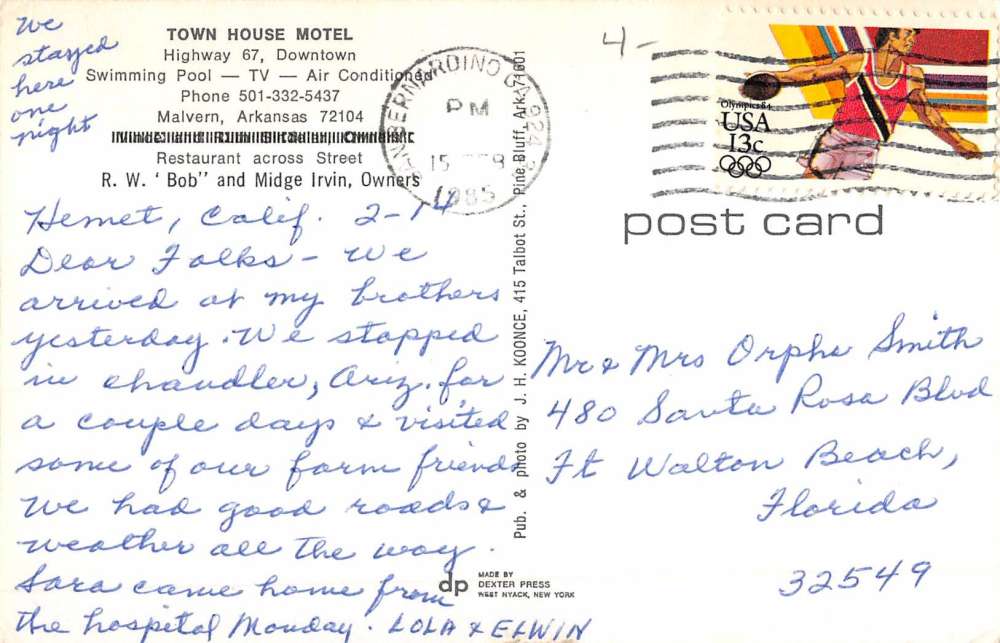 We
stayed
here
one
night
TOWN HOUSE MOTEL
Highway 67, Downtown
Swimming Pool — TV — Air Conditioned
Phone 501-332-5437
Malvern, Arkansas 72104
Restaurant across Street
R. W. ' Bob" and Midge Irvin, Owners
Hemet, Calif. 2-14
Dear Folks - We
arrived at my brothers
yesterday. We stopped
in chandler, Ariz. for
a couple days & visited
some of our farm friends
We had good roads &
weather all the way.
Sara came home from
the hospital Monday. LOLA & ELWIN
Pub. & photo by J. H. KOONCE, 415 Talbot St., Pine Bluff, Ark. 71601
dp
MADE BY
DEXTER PRESS
WEST NYACK, NEW YORK
4-
SAN BERNARDINO CA 924
PM
15 FEB
1985
Olympics 84
USA
13c
post card
Mr & Mrs Orpha Smith
480 Santa Rosa Blvd
Ft Walton Beach,
Florida
32549